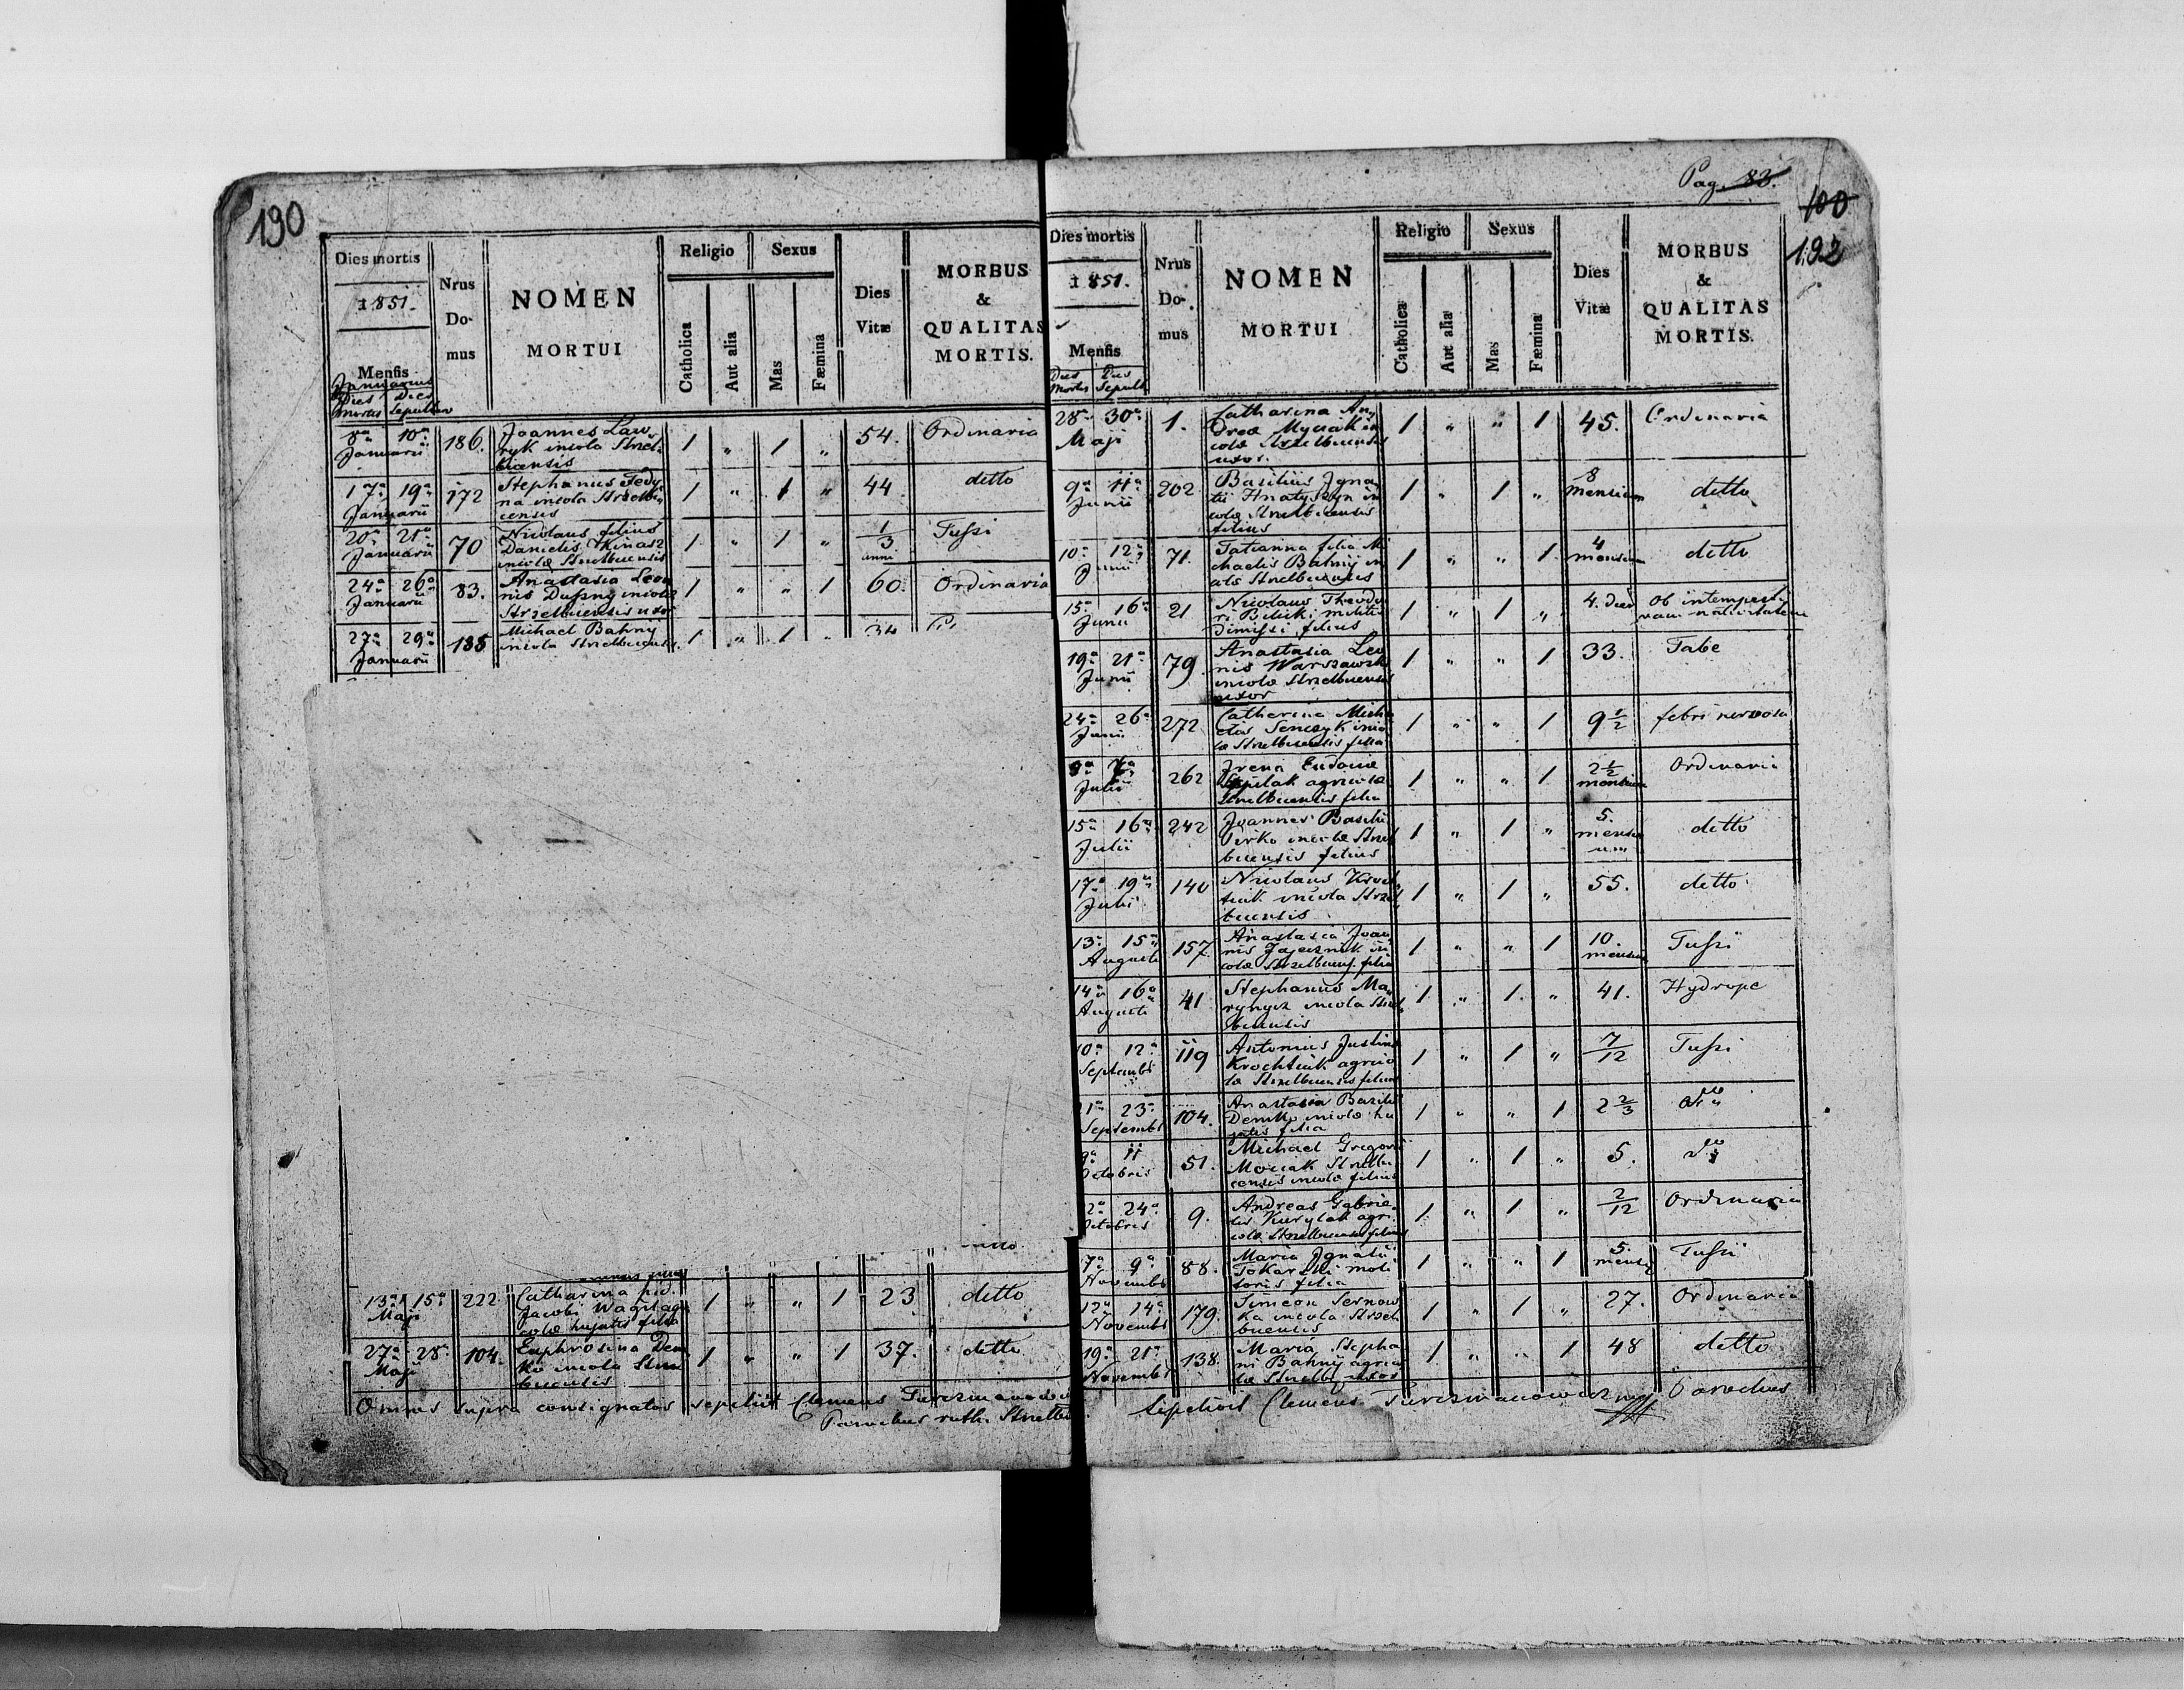 190
Dies mortis
1851.
Mensis
Januarius
Dies mortis
Dies Sepultur
Nrus Do-mus
NOMEN
MORTUI
Religio
Catholica
Aut alia
Sexus
Mas
Fæmina
Dies Vitæ
MORBUS
&
QUALITAS
MORTIS.
8a 10a Januarii 186. Joannes Law
ryk incola Strzel
bicensis 1 " 1 " 54. Ordinaria
17a 19a Januarii 172 Stephanus Fedy
na incola Strzelbi
censis 1 " 1 " 44 ditto
20a 21a Januarii 70 Nicolaus filius
Danielis Kinasz
incolæ Strzelbicensis 1 " 1 " 1/3 anni Tussi
24a 26a Januarii 83. Anastasia Leo
nis Dussny incolæ
Strzelbicensis uxor 1 " " 1 60. Ordinaria
27a 29a Januarii 185 Michael Bahny
incola Strzelbicensis. 1 " 1 " 34
13a 15a Maji 222 Catharina
Jacobi
colæ hujatis filia 1 " " 1 23 ditto
27a 28a Maji 104. Euphrosina Dem
ko incola Strzel
bicensis 1 " " 1 37. ditto
Omnes supra consignatos sepelivit Clemens Turczmanowicz
Parochus ruth. Strzelbi
Pag. 83.
100
192
Dies mortis
1851.
Mensis
Dies Mortis
Dies Sepult
Nrus Do-mus
NOMEN
MORTUI
Religio
Catholica
Aut alia
Sexus
Mas
Fæmina
Dies Vitæ
MORBUS
&
QUALITAS
MORTIS.
28a 30a Maji 1. Catharina An
dreæ Myciak in
colæ Strzelbicensis
uxor. 1 " " 1 45. Ordinaria
9a 11a Junii 202 Basilius Igna
tii Hnatyszyn in
colæ Strzelbicensis
filius 1 " 1 " 8 mensium ditto
10a 12a Junii 71. Tatianna filia Mi
chaelis Bahnij in
colæ Strzelbicensis 1 " " 1 4 mensium ditto
15a 16a Junii 21 Nicolaus Theodo
ri Bilik militis
dimissi filius 1 " 1 " 4. dies ob intempesti
vam nativitatem
19a 21a Junii 79. Anastasia Leo
nis Warszawski
incolæ Strzelbicensis
uxor 1 " " 1 33. Tabe
24a 26a Junii 272 Catherina Micha
elis Senczyk inco
læ Strzelbicensis filia 1 " " 1 9 1/2 febri nervosa
Julii 262 Irena Eudociæ
agricolæ
Strzelbicensis filia 1 " " 1 2 1/2 mensium Ordinaria
15a 16a Julii 242 Joannes Basilii
Pirko incolæ Strzel
bicensis filius 1 " 1 " 5. mensium ditto
17a 19a Julii 140 Nicolaus Kroch
tiak incola Strzel
bicensis 1 " 1 " 55. ditto
13a 15a Augusti 157. Anastasia Joan
nis Zajecznik in
colæ Strzelbicens. filia 1 " " 1 10. mensium Tussi
14a 16a Augusti 41 Stephanus Ma
rynycz incola Strzel
bicensis 1 " 1. " 41. Hydrope
10a 12a Septembr 119 Antonius Justini
Krochtiak agrico
læ Strzelbicensis filius 1 " 1 " 7/12 Tussi
21a 23a Septembr 104. Anastasia Basilii
Demko incolæ hu
jatis filia 1 " " 1 2 2/3 dto
9a 11 Octobris 51. Michael Gregorii
Mociak Strzelbi
censis incolæ filius 1 " 1 " 5. dto
22a 24a Octobris 9. Andreas Gabrie
lis Kurylak agri
colæ Strzelbicensis filius 1 " 1 " 2/12 Ordinaria
7a 9a Novembr 88. Maria Ignatii
Tokarski moli
toris filia 1 " " 1 5. mensium Tussi
12a 14a Novembr 179. Simeon Sernow
ka incola Strzel
bicensis 1 " 1 " 27. Ordinaria
19a 21a Novembr 138. Maria Stepha
ni Bahnij agrico
læ Strzelbi. uxor 1 " " 1 48 ditto
Sepelivit Clemens Turczmanowicz mp Parochus